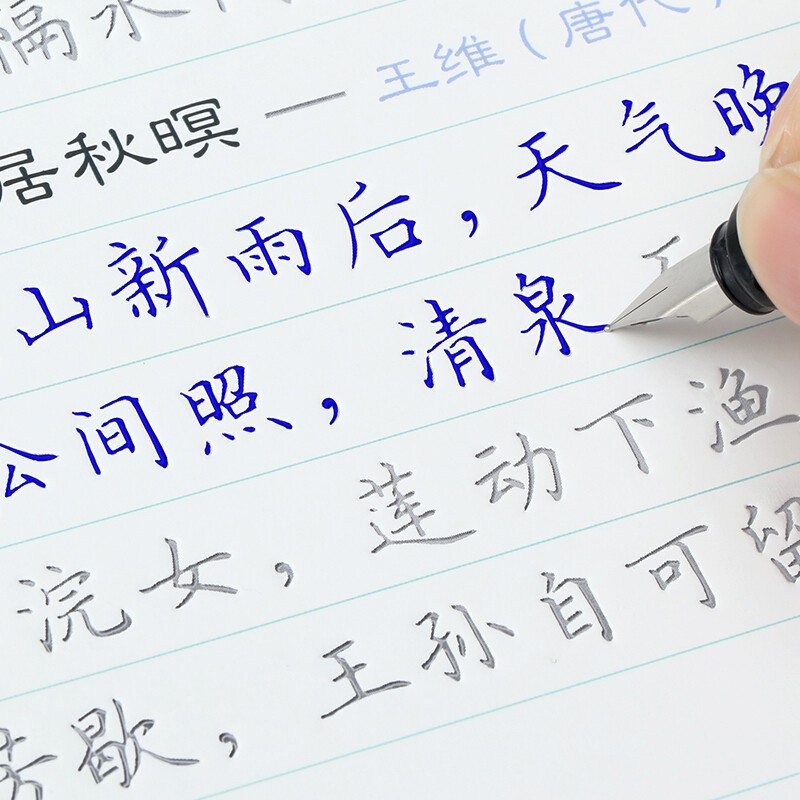 隔水
居秋暝 — 王维（唐代）
山新雨后，天气晚
松间照，清泉
浣女，莲动下渔
芳歇，王孙自可留